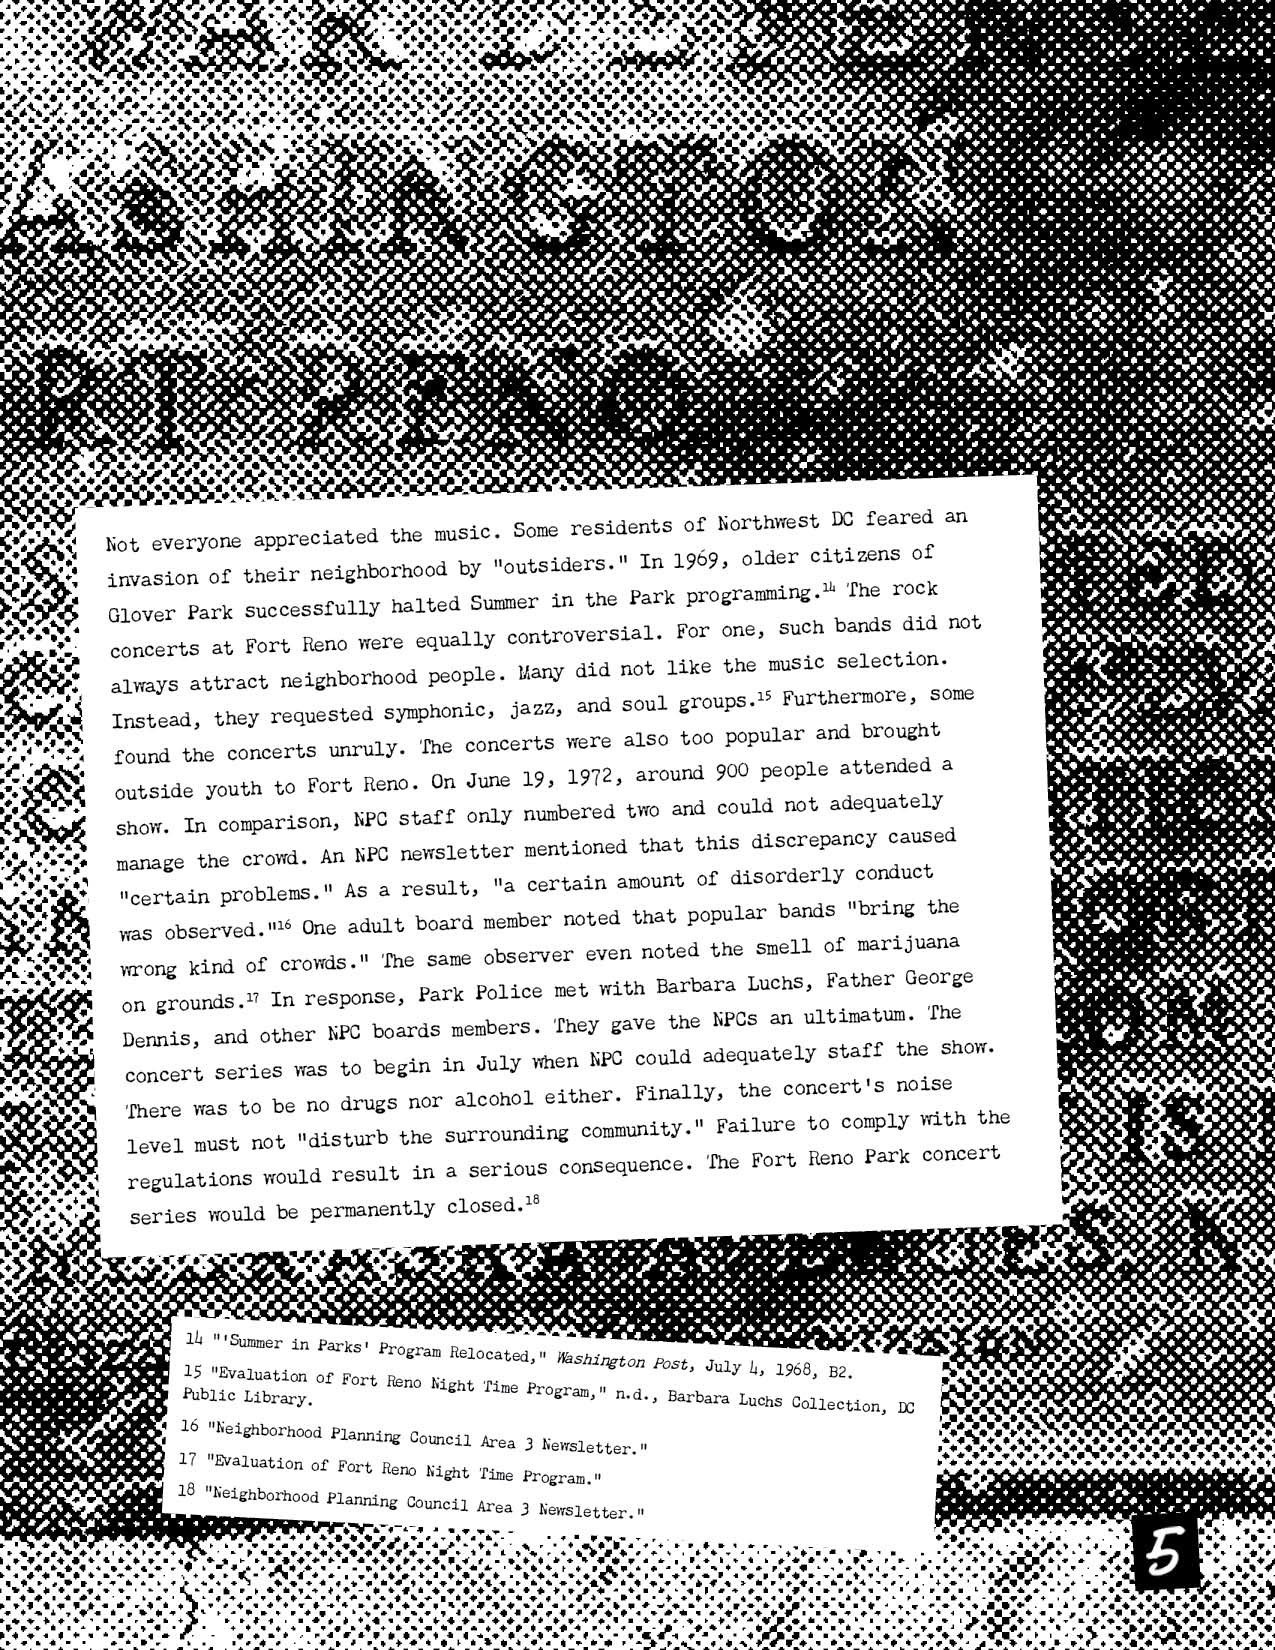 Not everyone appreciated the music. Some residents of Northwest DC feared an
invasion of their neighborhood by "outsiders." In 1969, older citizens of
Glover Park successfully halted Summer in the Park programming.¹⁴ The rock
concerts at Fort Reno were equally controversial. For one, such bands did not
always attract neighborhood people. Many did not like the music selection.
Instead, they requested symphonic, jazz, and soul groups.¹⁵ Furthermore, some
found the concerts unruly. The concerts were also too popular and brought
outside youth to Fort Reno. On June 19, 1972, around 900 people attended a
show. In comparison, NPC staff only numbered two and could not adequately
manage the crowd. An NPC newsletter mentioned that this discrepancy caused
"certain problems." As a result, "a certain amount of disorderly conduct
was observed."¹⁶ One adult board member noted that popular bands "bring the
wrong kind of crowds." The same observer even noted the smell of marijuana
on grounds.¹⁷ In response, Park Police met with Barbara Luchs, Father George
Dennis, and other NPC boards members. They gave the NPCs an ultimatum. The
concert series was to begin in July when NPC could adequately staff the show.
There was to be no drugs nor alcohol either. Finally, the concert's noise
level must not "disturb the surrounding community." Failure to comply with the
regulations would result in a serious consequence. The Fort Reno Park concert
series would be permanently closed.¹⁸
14 "'Summer in Parks' Program Relocated," Washington Post, July 4, 1968, B2.
15 "Evaluation of Fort Reno Night Time Program," n.d., Barbara Luchs Collection, DC
Public Library.
16 "Neighborhood Planning Council Area 3 Newsletter."
17 "Evaluation of Fort Reno Night Time Program."
18 "Neighborhood Planning Council Area 3 Newsletter."
5